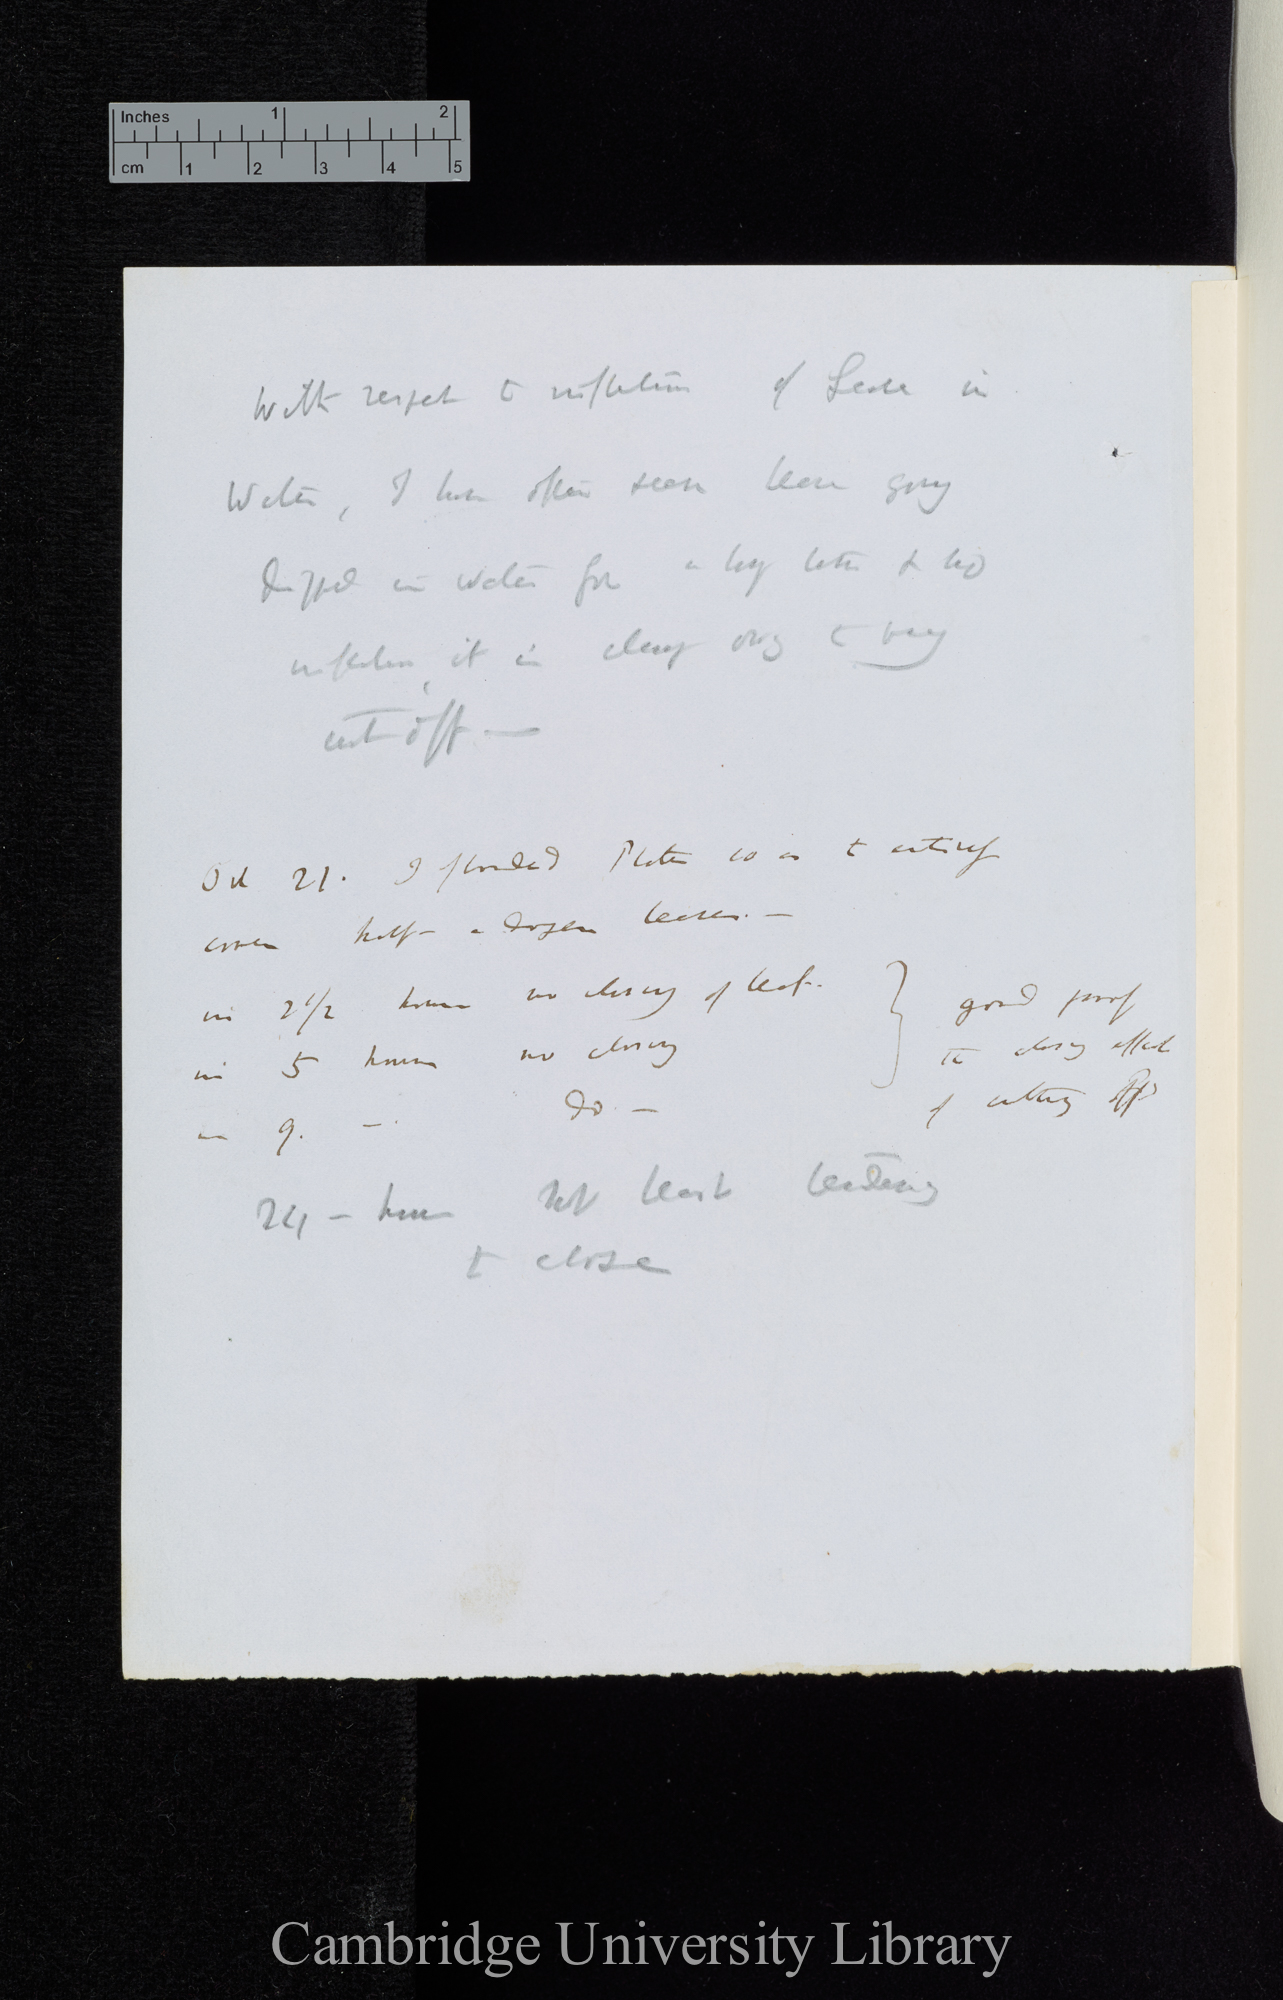 Inches 1 2
cm 1 2 3 4 5
With respect to inflection of leaves in
Water, I have often seen leaves going
dipped in water for a long time & no
inflection, it is clearly owing to being
cut off —
Oct 21. I flooded Plate so as to entirely
cover half-a-dozen leaves. —
in 2 1/2 hours no closing of leaf.
in 5 hours no closing
in 9. — do —
good proof
the closing effect
of cutting off
24 – hours not least tendency
to close
Cambridge University Library